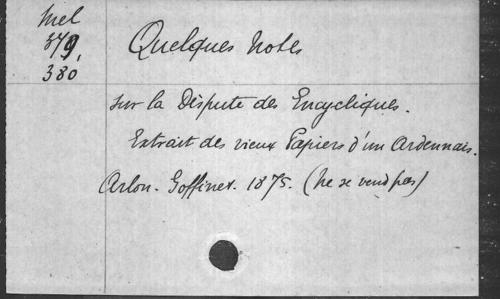 Mel
379,
380
Quelques Notes
sur la Dispute des Encycliques.
Extrait des vieux Papiers d'un Ardennais.
Arlon. Goffinet. 1875. (ne se vend pas)